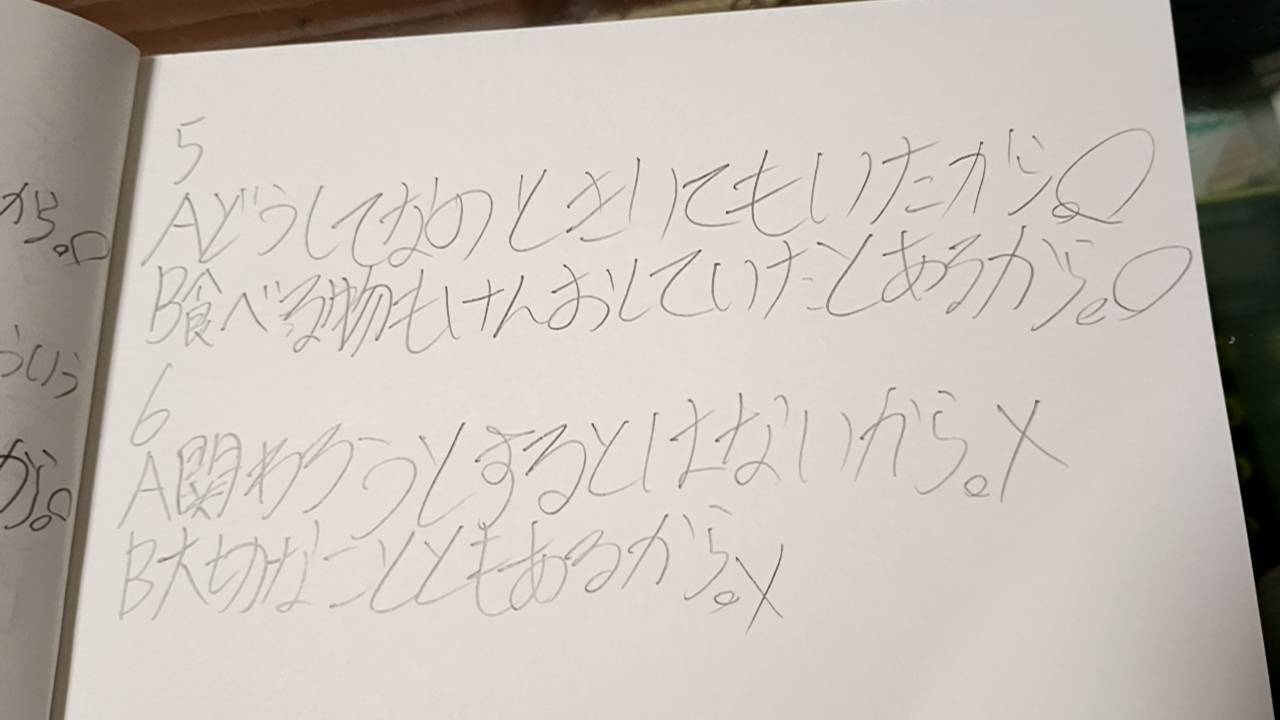 5
Aどうしてなのときいてもいたから。○
B食べる物もけんおしていたとあるから。○
6
A関わろうとするとはないから。×
B大切なことともあるから。×
から。○
ういう
から。○